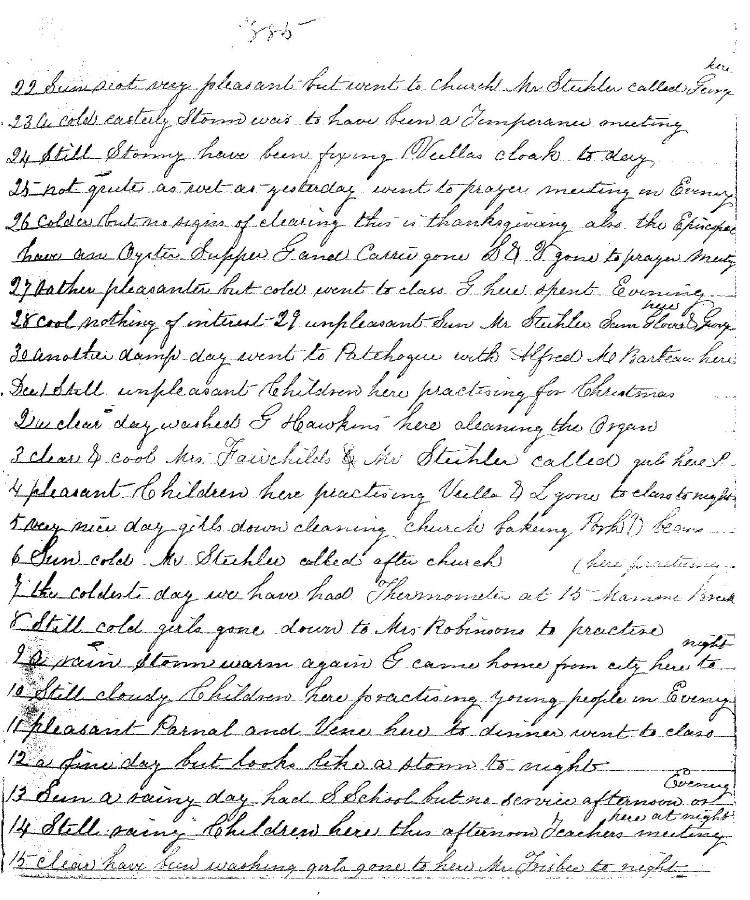 885
here
22 Sun not very pleasant but went to church Mr Stehler called Georg
23 a cold easterly Storm was to have been a Temperance meeting
24 Still Stormy have been fixing Vellas cloak to day
25 not quite as wet as yesterday went to prayer meeting in Evening
26 Colder but no signs of clearing this is thanksgiving also the Episcopal
have an Oyster Supper G and Carrie gone L & V gone to prayer Meetg
27 Rather pleasanter but cold went to class G here spent Evening
here
28 cool nothing of interest 29 unpleasant Sun Mr Stehler Sam Glover & Georg
30 another damp day went to Patchogue with Alfred Mc Barteau here
Dec 1 Still unpleasant Children here practising for Christmas
2 a clear day washed G Hawkins here cleaning the Organ
3 clear & cool Mrs Fairchilds & Mr Stehler called girls here P
4 pleasant Children here practising Vella & L gone to class to night
5 very nice day girls down cleaning church bakeing Pork & beans
6 Sun cold Mr Stehler called after church (here practising
7 the coldest day we have had Thermometer at 15 Mamone
8 Still cold girls gone down to Mrs Robinsons to practise
night
9 a rain Storm warm again G came home from city here to
10 Still cloudy Children here practising young people in Evening
11 pleasant Parnal and Vene here to dinner went to class
12 a fine day but looks like a storm to night
Evening
13 Sun a rainy day had S School but no service afternoon or
here at night
14 Still rainy Children here this afternoon Teachers meeting
15 clear have been washing girls gone to hear Mr Frisbee to night